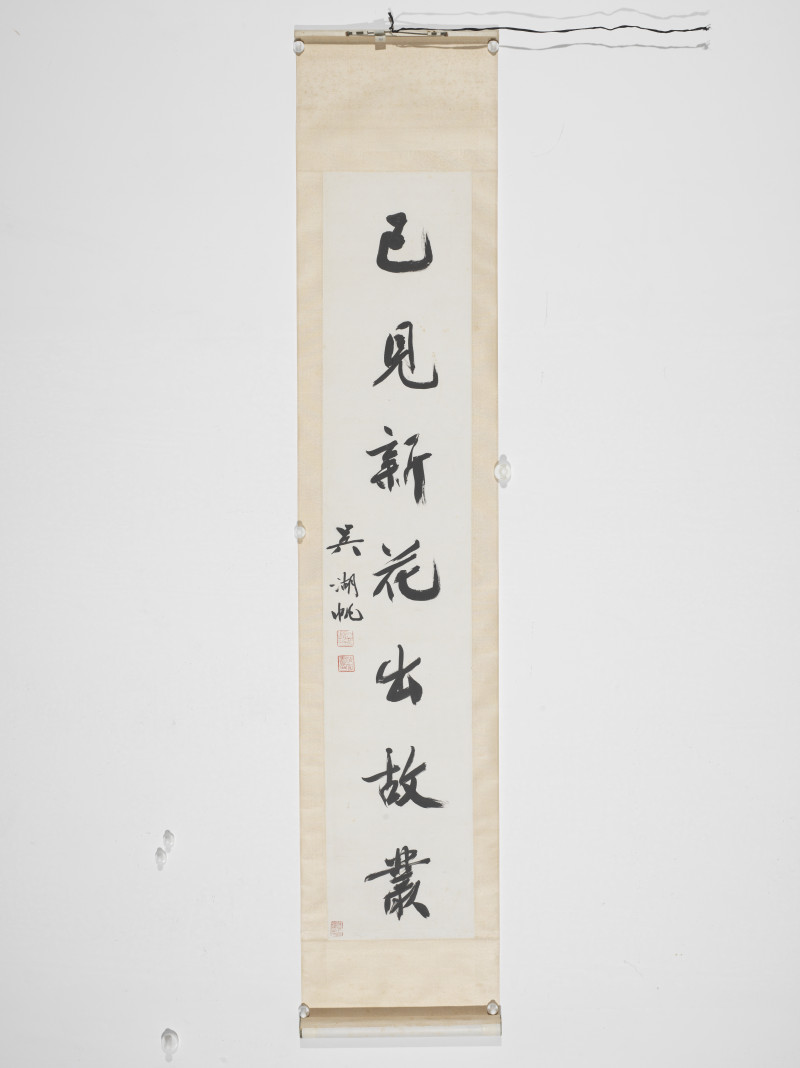 已見新花出故叢
吳湖帆